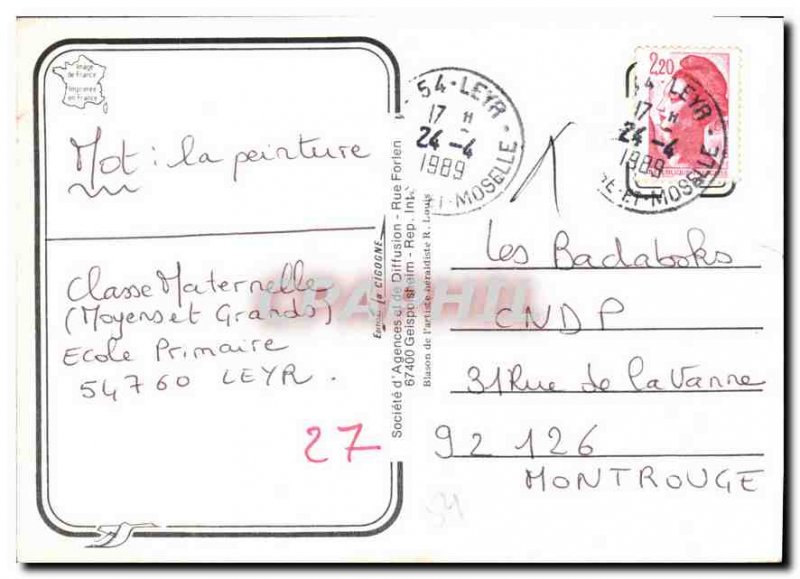 Image
de France
Imprimée
en France
Mot : la peinture
Classe Maternelle
(Moyens et Grands)
Ecole Primaire
54760 LEYR.
27
Editions La CIGOGNE
Société d'Agences et de Diffusion - Rue Forlen
67400 Geispolsheim - Rep. Int
Blason de l'artiste héraldiste R. Louis
54 - LEYR -
17 H
24 -4
1989
ET-MOSELLE
2,20
54 LEYR -
17 H
24 -4
1989
E-ET-MOSELLE
1
Les Badaboks
CNDP
31 Rue de la Vanne
92 126
MONTROUGE
54